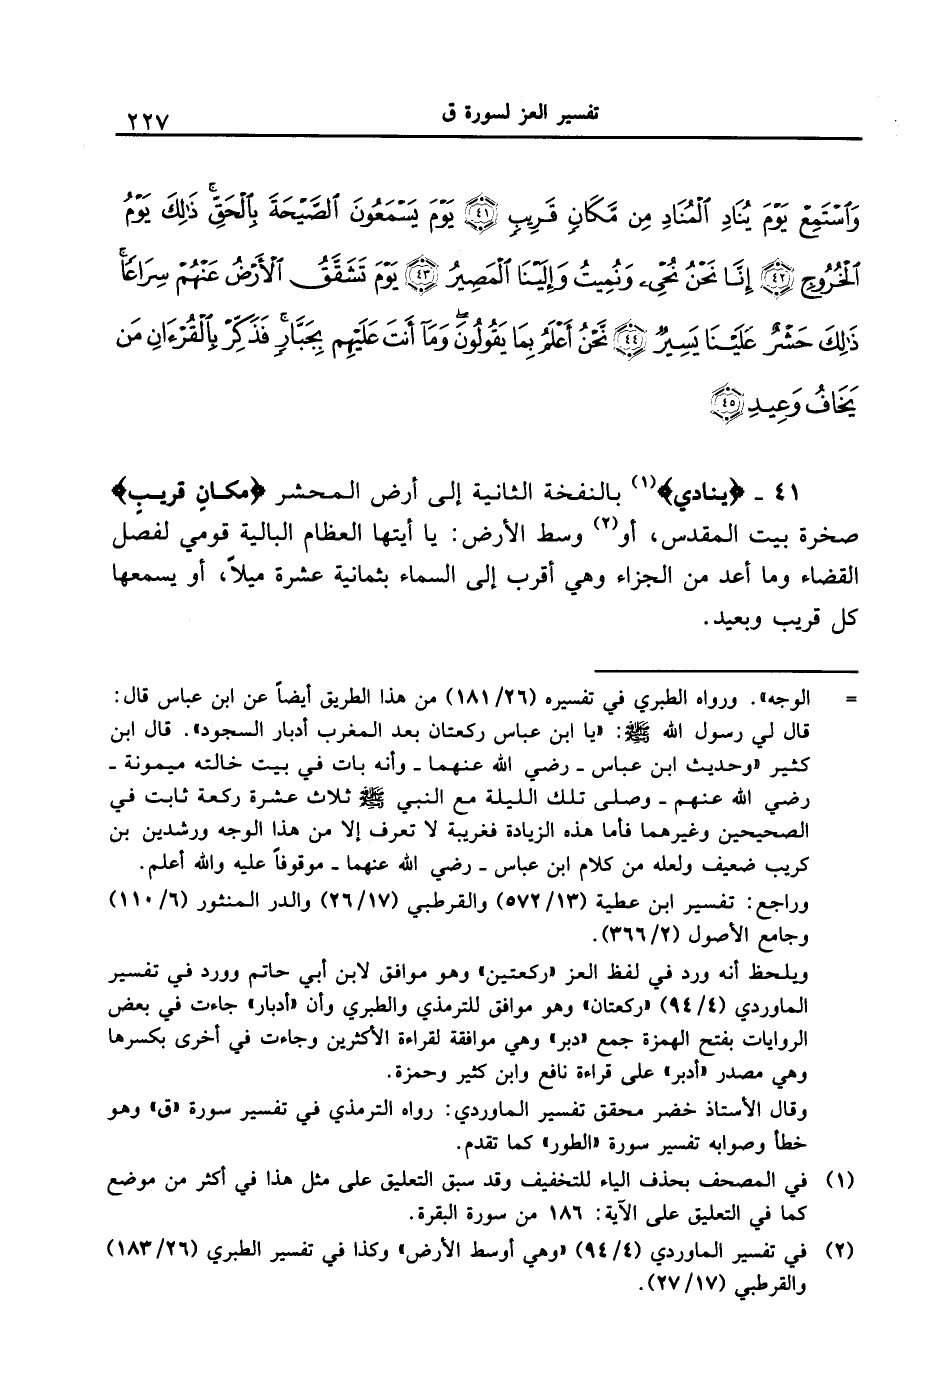 تفسير العز لسورة ق ٢٢٧
وَٱسْتَمِعْ يَوْمَ يُنَادِ ٱلْمُنَادِ مِن مَّكَانٍ قَرِيبٍ ﴿٤١﴾ يَوْمَ يَسْمَعُونَ ٱلصَّيْحَةَ بِٱلْحَقِّ ۚ ذَٰلِكَ يَوْمُ
ٱلْخُرُوجِ ﴿٤٢﴾ إِنَّا نَحْنُ نُحْىِۦ وَنُمِيتُ وَإِلَيْنَا ٱلْمَصِيرُ ﴿٤٣﴾ يَوْمَ تَشَقَّقُ ٱلْأَرْضُ عَنْهُمْ سِرَاعًا ۚ
ذَٰلِكَ حَشْرٌ عَلَيْنَا يَسِيرٌ ﴿٤٤﴾ نَّحْنُ أَعْلَمُ بِمَا يَقُولُونَ ۖ وَمَآ أَنتَ عَلَيْهِم بِجَبَّارٍ ۖ فَذَكِّرْ بِٱلْقُرْءَانِ مَن
يَخَافُ وَعِيدِ ﴿٤٥﴾
٤١ ـ ﴿ينادي﴾(١) بالنفخة الثانية إلى أرض المحشر ﴿مكانٍ قريبٍ﴾
صخرة بيت المقدس، أو(٢) وسط الأرض: يا أيتها العظام البالية قومي لفصل
القضاء وما أعد من الجزاء وهي أقرب إلى السماء بثمانية عشرة ميلاً، أو يسمعها
كل قريب وبعيد.
= الوجه». ورواه الطبري في تفسيره (١٨١/٢٦) من هذا الطريق أيضاً عن ابن عباس قال:
قال لي رسول الله ﷺ: «يا ابن عباس ركعتان بعد المغرب أدبار السجود». قال ابن
كثير «وحديث ابن عباس ـ رضي الله عنهما ـ وأنه بات في بيت خالته ميمونة ـ
رضي الله عنهم ـ وصلى تلك الليلة مع النبي ﷺ ثلاث عشرة ركعة ثابت في
الصحيحين وغيرهما فأما هذه الزيادة فغريبة لا تعرف إلا من هذا الوجه ورشدين بن
كريب ضعيف ولعله من كلام ابن عباس ـ رضي الله عنهما ـ موقوفاً عليه والله أعلم.
وراجع: تفسير ابن عطية (٥٧٢/١٣) والقرطبي (٢٦/١٧) والدر المنثور (١١٠/٦)
وجامع الأصول (٣٦٦/٢).
ويلحظ أنه ورد في لفظ العز «ركعتين» وهو موافق لابن أبي حاتم وورد في تفسير
الماوردي (٩٤/٤) «ركعتان» وهو موافق للترمذي والطبري وأن «أدبار» جاءت في بعض
الروايات بفتح الهمزة جمع «دبر» وهي موافقة لقراءة الأكثرين وجاءت في أخرى بكسرها
وهي مصدر «أدبر» على قراءة نافع وابن كثير وحمزة.
وقال الأستاذ خضر محقق تفسير الماوردي: رواه الترمذي في تفسير سورة «ق» وهو
خطأ وصوابه تفسير سورة «الطور» كما تقدم.
(١) في المصحف بحذف الياء للتخفيف وقد سبق التعليق على مثل هذا في أكثر من موضع
كما في التعليق على الآية: ١٨٦ من سورة البقرة.
(٢) في تفسير الماوردي (٩٤/٤) «وهي أوسط الأرض» وكذا في تفسير الطبري (١٨٣/٢٦)
والقرطبي (٢٧/١٧).